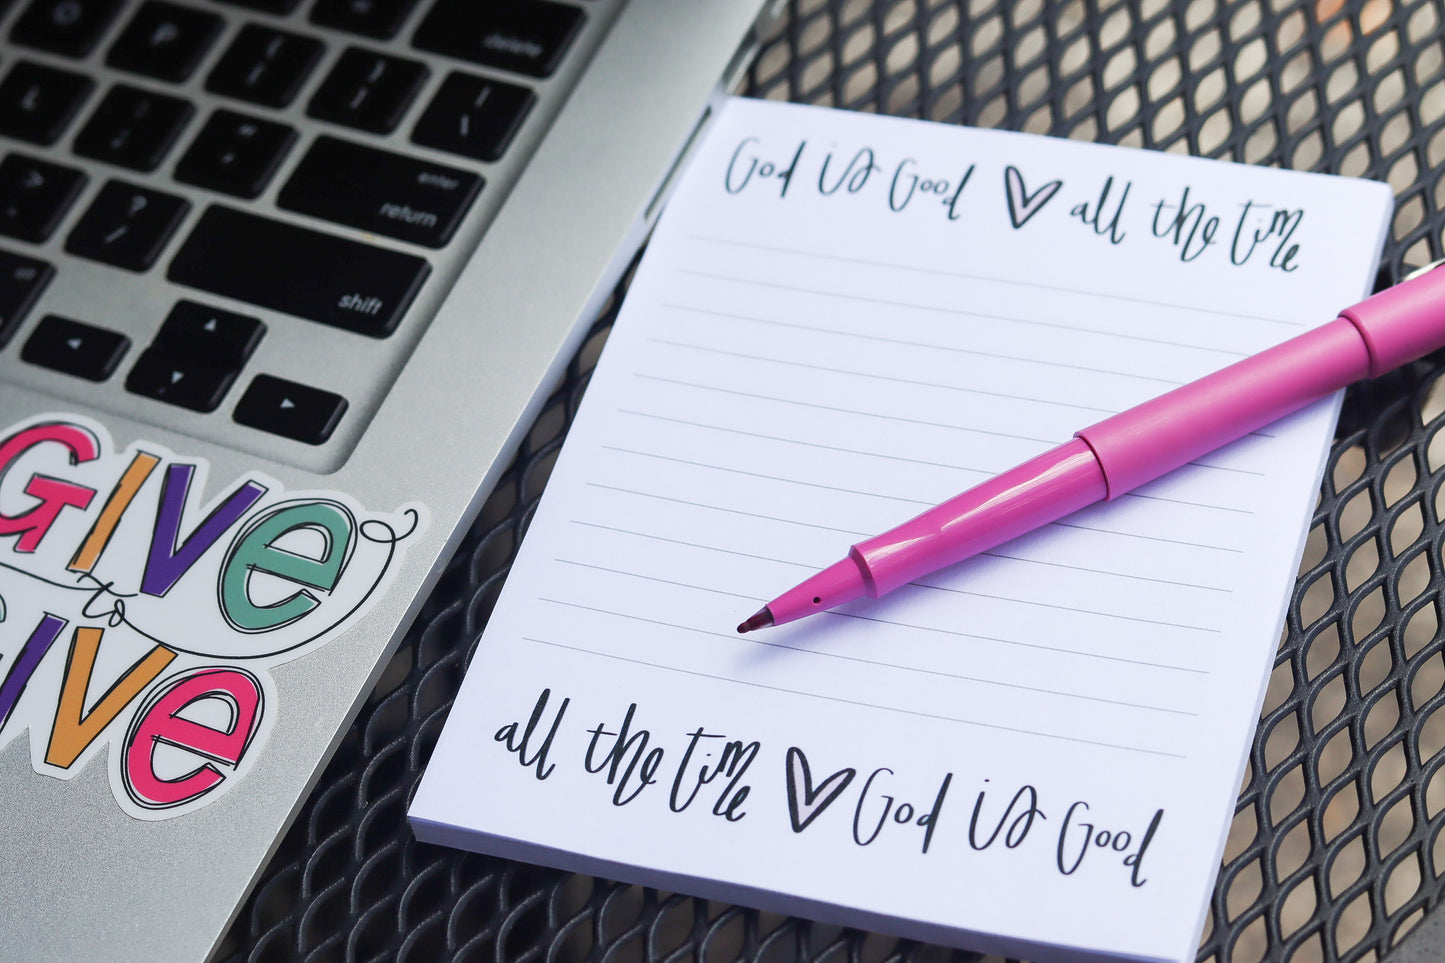 O P { [ } ] | \ delete
L : ; " '
enter
return
> . ? /
shift
GIVE
to
GIVE
God is Good all the time
all the time God is Good